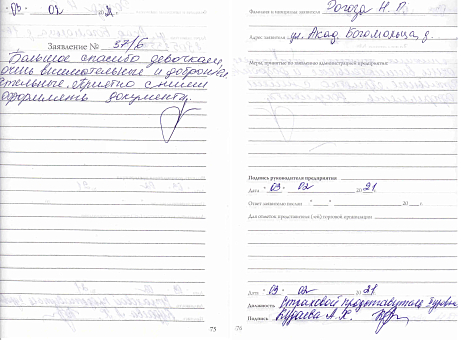 03 02 21
Заявление № 57/Б
Большое спасибо девочкам,
очень внимательные и доброжела
тельные. Приятно с ними
оформлять документы.
75
Фамилия и инициалы заявителя Рогоза Н. Р.
Адрес заявителя ул. Акад. Богомольца, д.
Меры, принятые по заявлению администрацией предприятия:
Подпись руководителя предприятия
Дата 03 02 2021
Ответ заявителю послан "___" 20 г.
Для отметок представителя (лей) торговой организации
Дата 03 02 2021
Должность Страховой представитель
Подпись
76